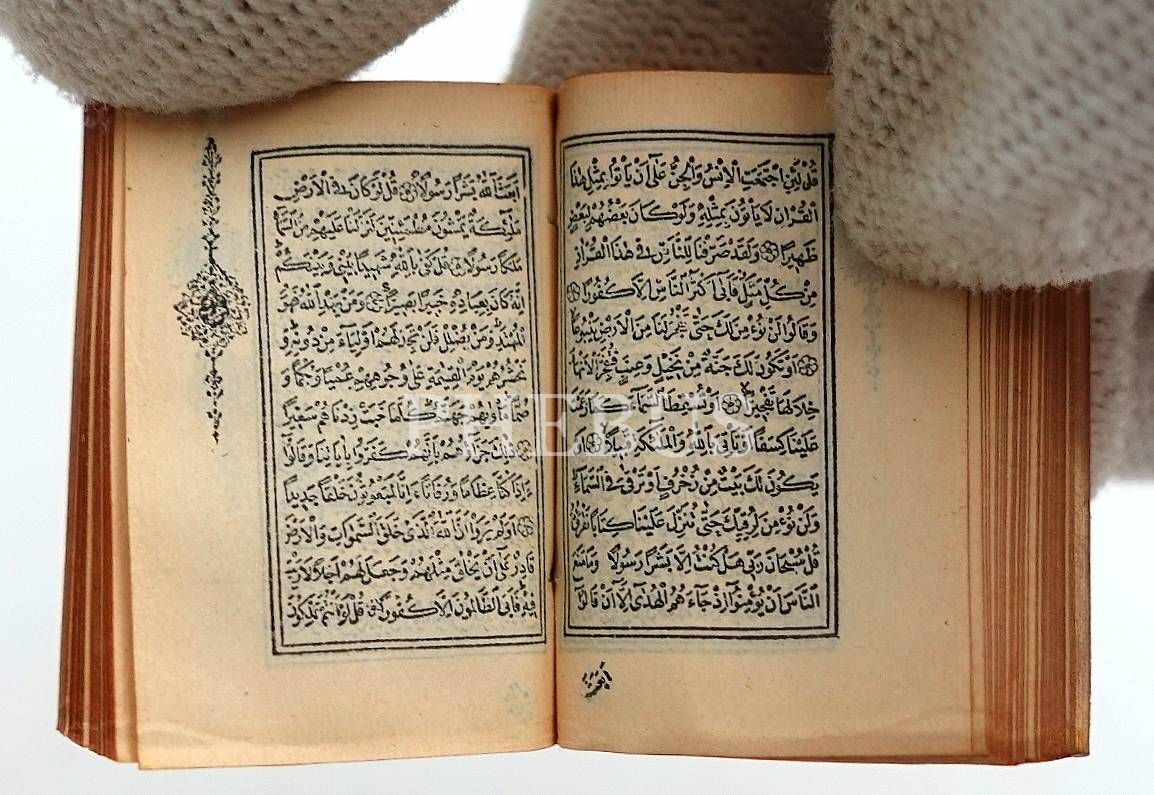 قُلْ لَئِنِ اجْتَمَعَتِ الْاِنْسُ وَالْجِنُّ عَلٰٓى اَنْ يَاْتُوا بِمِثْلِ هٰذَا
الْقُرْاٰنِ لَا يَاْتُونَ بِمِثْلِهٖ وَلَوْ كَانَ بَعْضُهُمْ لِبَعْضٍ
ظَهٖيرًا وَلَقَدْ صَرَّفْنَا لِلنَّاسِ فٖى هٰذَا الْقُرْاٰنِ
مِنْ كُلِّ مَثَلٍ فَاَبٰٓى اَكْثَرُ النَّاسِ اِلَّا كُفُورًا
وَقَالُوا لَنْ نُؤْمِنَ لَكَ حَتّٰى تَفْجُرَ لَنَا مِنَ الْاَرْضِ يَنْبُوعًا
اَوْ تَكُونَ لَكَ جَنَّةٌ مِنْ نَخٖيلٍ وَعِنَبٍ فَتُفَجِّرَ الْاَنْهَارَ
خِلَالَهَا تَفْجٖيرًا اَوْ تُسْقِطَ السَّمَٓاءَ كَمَا زَعَمْتَ
عَلَيْنَا كِسَفًا اَوْ تَاْتِىَ بِاللّٰهِ وَالْمَلٰٓئِكَةِ قَبٖيلًا اَوْ
يَكُونَ لَكَ بَيْتٌ مِنْ زُخْرُفٍ اَوْ تَرْقٰى فِى السَّمَٓاءِ
وَلَنْ نُؤْمِنَ لِرُقِيِّكَ حَتّٰى تُنَزِّلَ عَلَيْنَا كِتَابًا نَقْرَؤُهُ
قُلْ سُبْحَانَ رَبّٖى هَلْ كُنْتُ اِلَّا بَشَرًا رَسُولًا وَمَا مَنَعَ
النَّاسَ اَنْ يُؤْمِنُٓوا اِذْ جَٓاءَهُمُ الْهُدٰٓى اِلَّٓا اَنْ قَالُٓوا
اَبَعَثَ
اَبَعَثَ اللّٰهُ بَشَرًا رَسُولًا قُلْ لَوْ كَانَ فِى الْاَرْضِ
مَلٰٓئِكَةٌ يَمْشُونَ مُطْمَئِنّٖينَ لَنَزَّلْنَا عَلَيْهِمْ مِنَ السَّمَٓاءِ
مَلَكًا رَسُولًا قُلْ كَفٰى بِاللّٰهِ شَهٖيدًا بَيْنٖى وَبَيْنَكُمْ
اِنَّهُ كَانَ بِعِبَادِهٖ خَبٖيرًا بَصٖيرًا وَمَنْ يَهْدِ اللّٰهُ فَهُوَ
الْمُهْتَدِ وَمَنْ يُضْلِلْ فَلَنْ تَجِدَ لَهُمْ اَوْلِيَٓاءَ مِنْ دُونِهٖ وَ
نَحْشُرُهُمْ يَوْمَ الْقِيٰمَةِ عَلٰى وُجُوهِهِمْ عُمْيًا وَبُكْمًا وَ
صُمًّا مَاْوٰيهُمْ جَهَنَّمُ كُلَّمَا خَبَتْ زِدْنَاهُمْ سَعٖيرًا
ذٰلِكَ جَزَٓاؤُهُمْ بِاَنَّهُمْ كَفَرُوا بِاٰيَاتِنَا وَقَالُٓوا
ءَاِذَا كُنَّا عِظَامًا وَرُفَاتًا ءَاِنَّا لَمَبْعُوثُونَ خَلْقًا جَدٖيدًا
اَوَلَمْ يَرَوْا اَنَّ اللّٰهَ الَّذٖى خَلَقَ السَّمٰوَاتِ وَالْاَرْضَ
قَادِرٌ عَلٰٓى اَنْ يَخْلُقَ مِثْلَهُمْ وَجَعَلَ لَهُمْ اَجَلًا لَا رَيْبَ
فٖيهِ فَاَبَى الظَّالِمُونَ اِلَّا كُفُورًا قُلْ لَوْ اَنْتُمْ تَمْلِكُونَ
PHEBUS